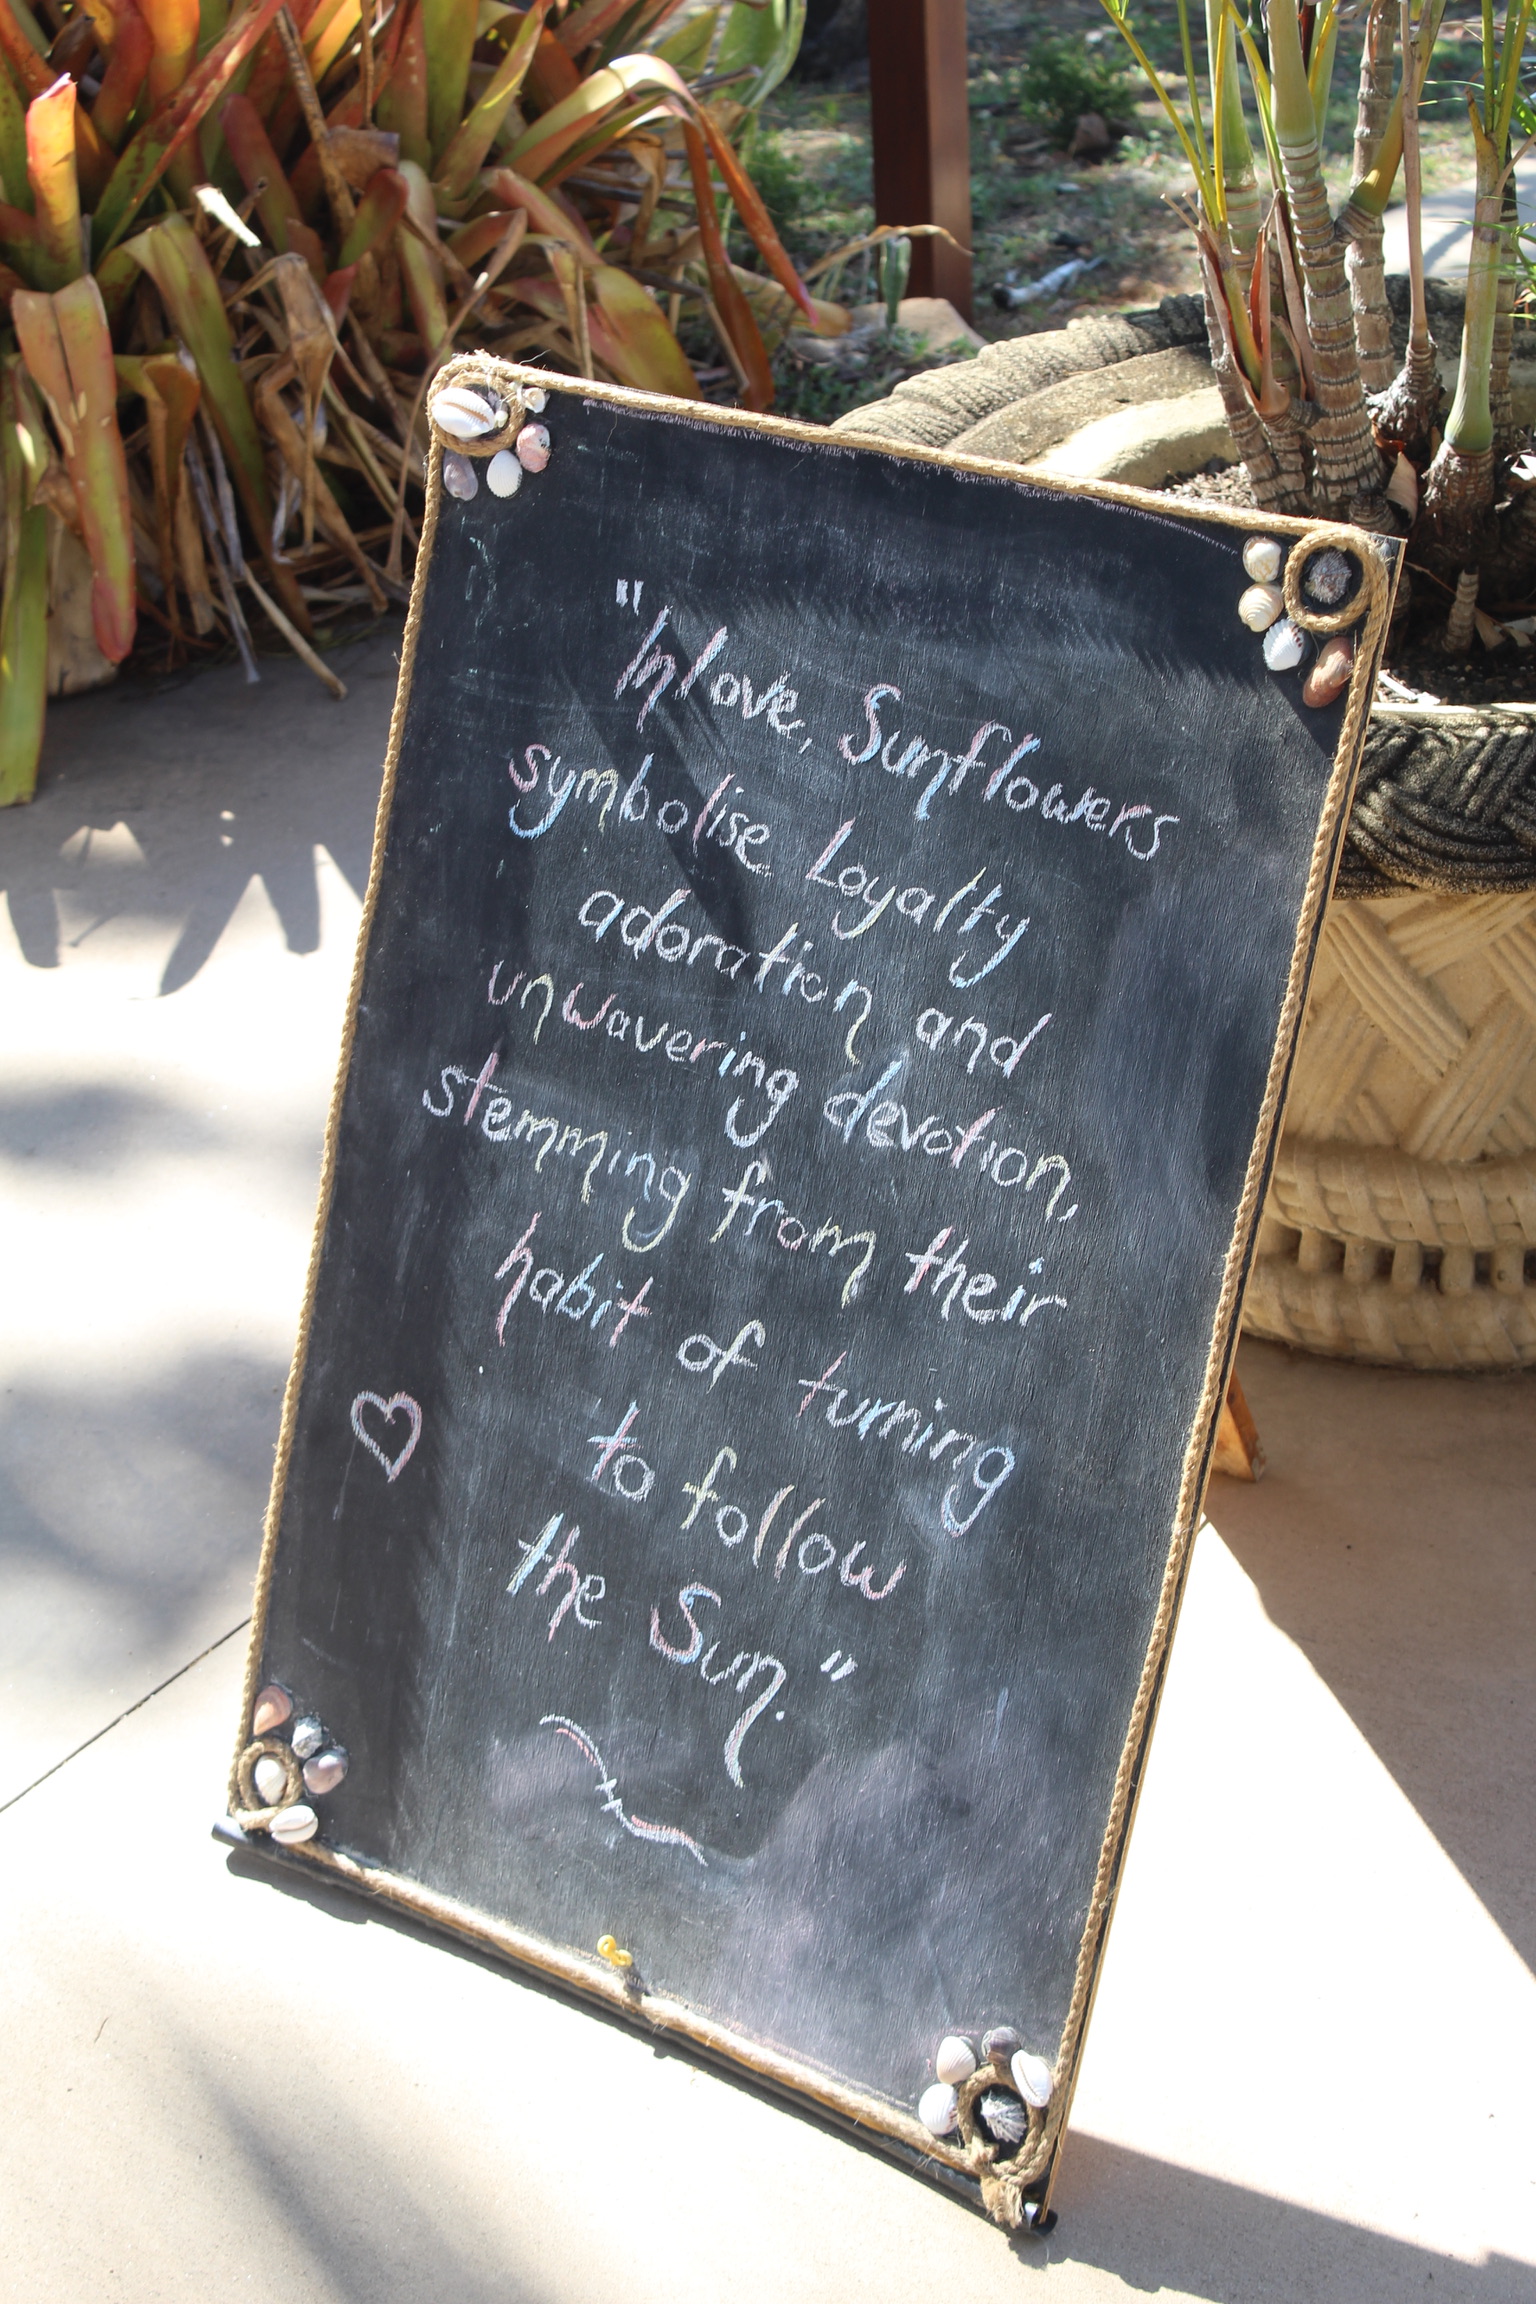 "In love, Sunflowers
symbolise Loyalty
adoration and
unwavering devotion,
stemming from their
habit of turning
to follow
the Sun."